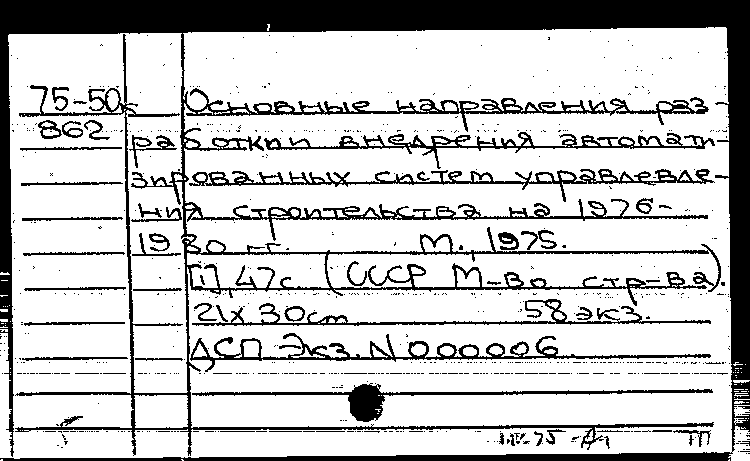 75-50к Основные направления раз-
862 работки и внедрения автомати-
зированных систем управлевле-
ния строительства на 1976-
1980 гг. М., 1975.
[1], 47с (СССР М-во стр-ва).
21х30cm 58 экз.
ДСП Экз. N 000006